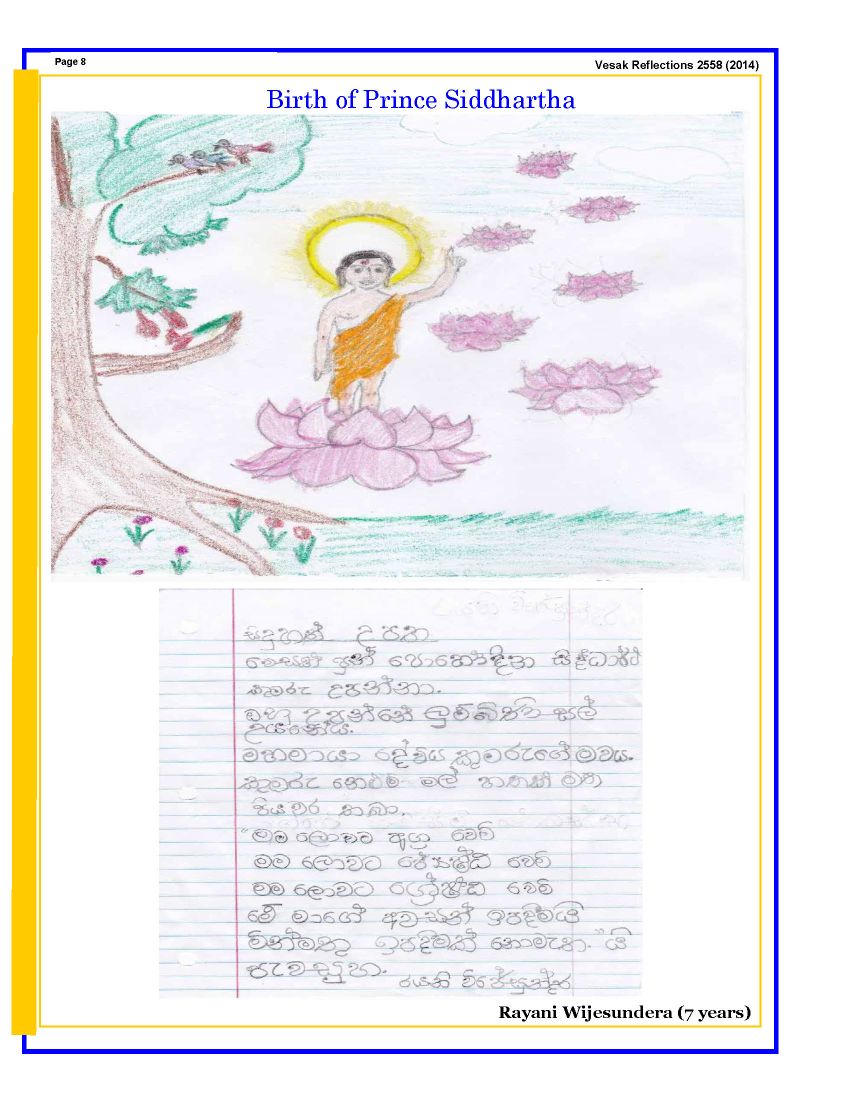 Page 8
Vesak Reflections 2558 (2014)
Birth of Prince Siddhartha
සිදුහත් උපත
වෙසක් පුන් පොහෝදින සිද්ධාර්ථ
කුමරු උපන්නා.
ඔහු උපන්නේ ලුම්බිණි සල්
උයනේය.
මහමායා දේවිය කුමරුගේ මවය.
කුමරු නෙළුම් මල් හතක් මත
පියවර තැබා.
"මම ලොවට අග්‍ර වෙමි
මම ලොවට ජේෂ්ඨ වෙමි
මම ලොවට ශ්‍රේෂ්ඨ වෙමි
මේ මාගේ අවසන් ඉපදීමයි
මින්මතු ඉපදීමක් නොමැත. "යි
පැවසුහ.
රයනි විජේසුන්දර
Rayani Wijesundera (7 years)